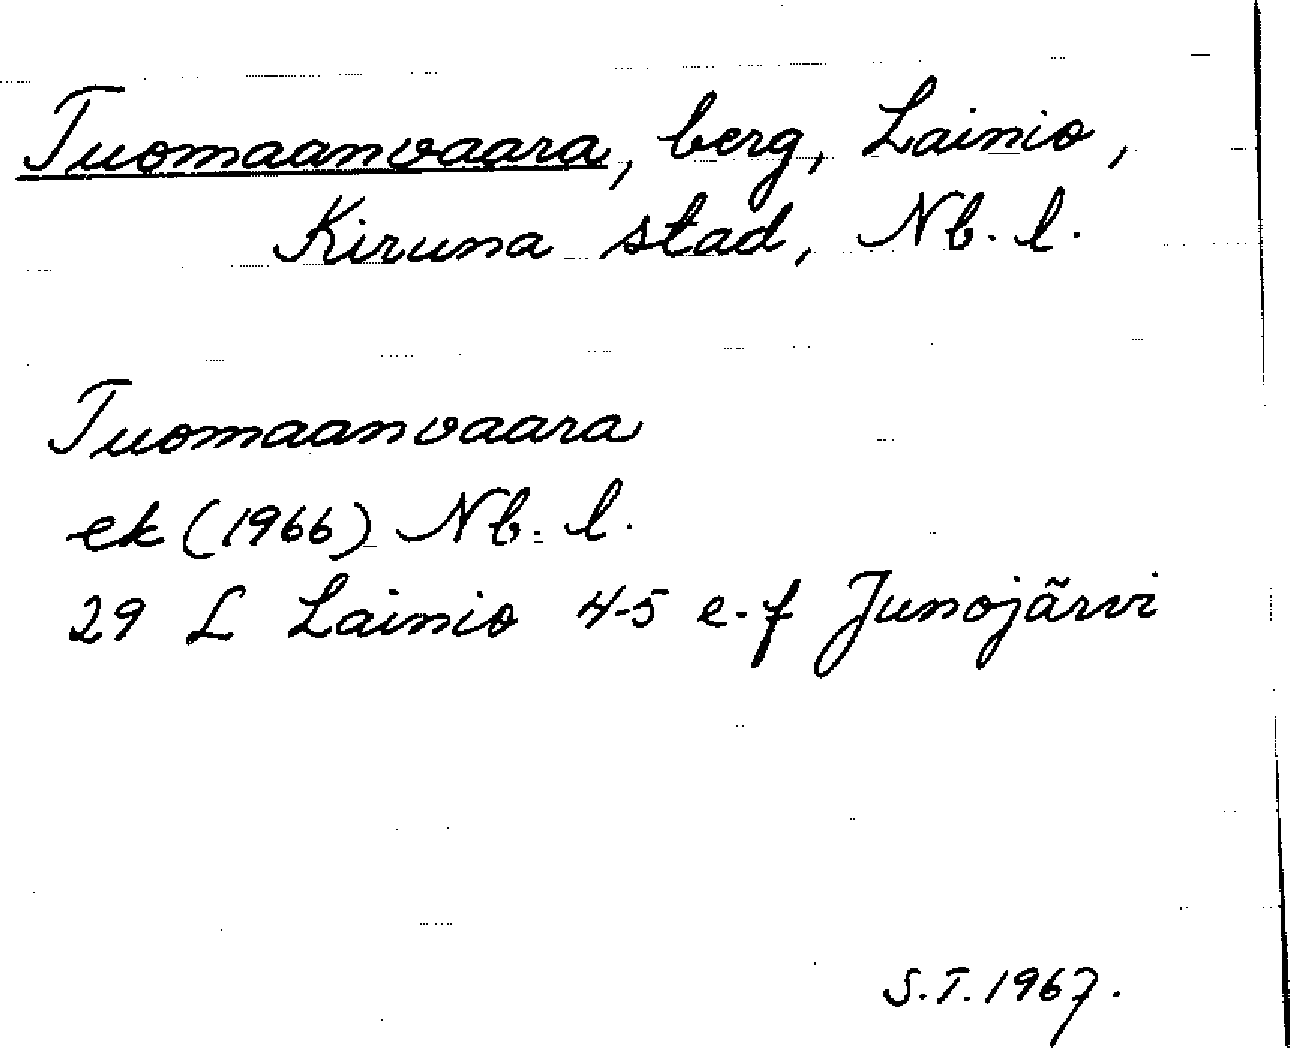 Tuomaanvaara, berg, Lainio,
Kiruna stad, Nb. l.
Tuomaanvaara
ek (1966) Nb. l.
29 L Lainio 4-5 e-f Junojärvi
S.T. 1967.